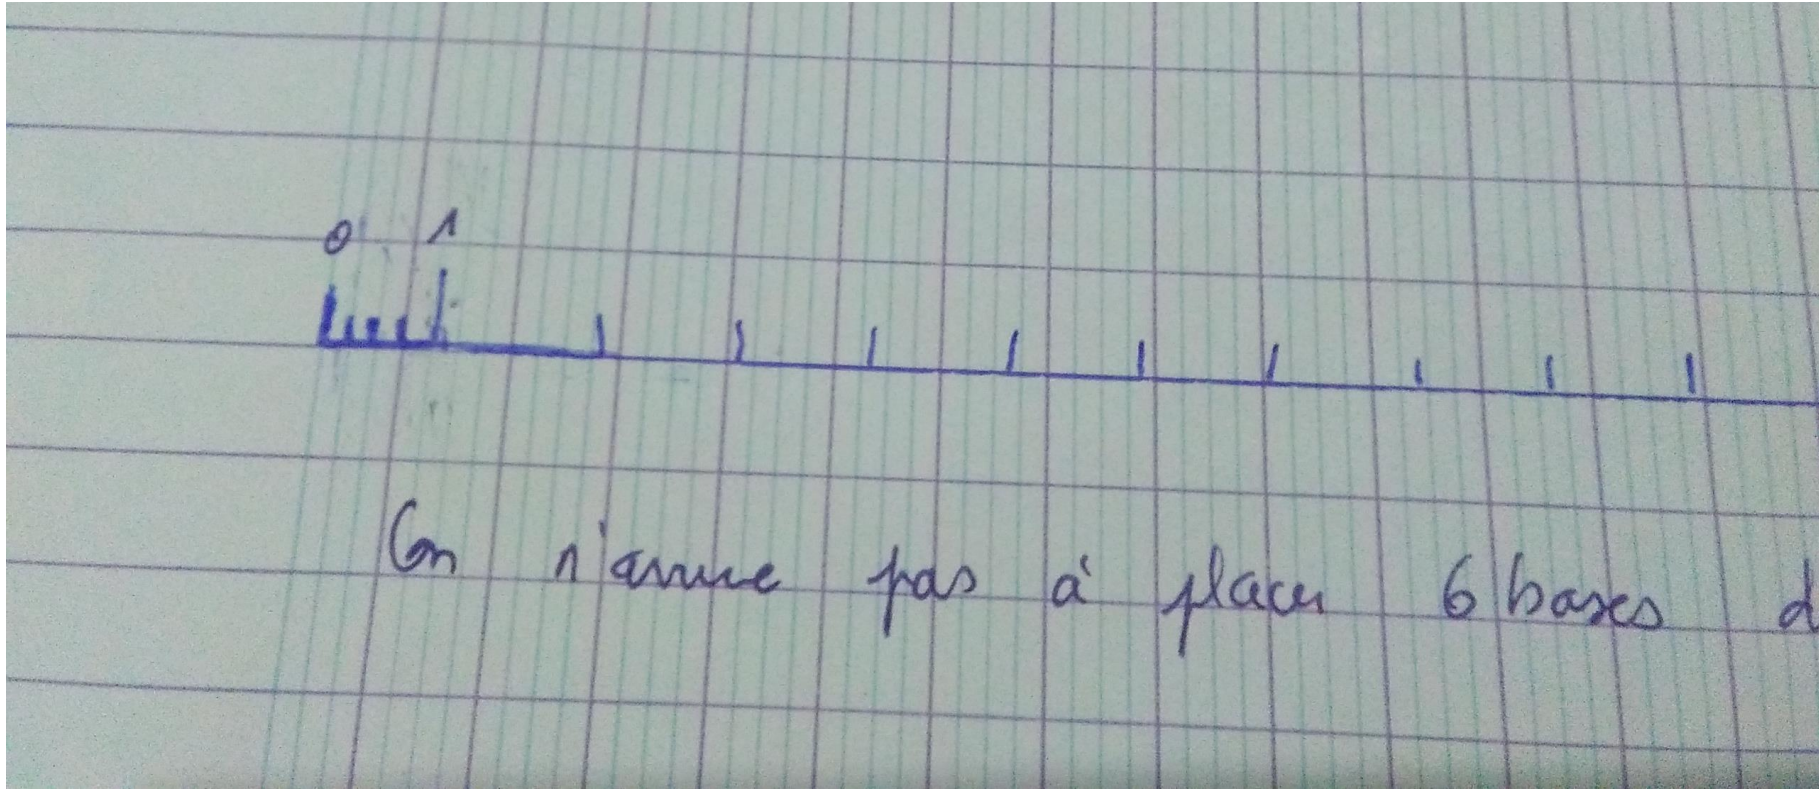 0 1
On n'arrive pas à placer 6 bases d